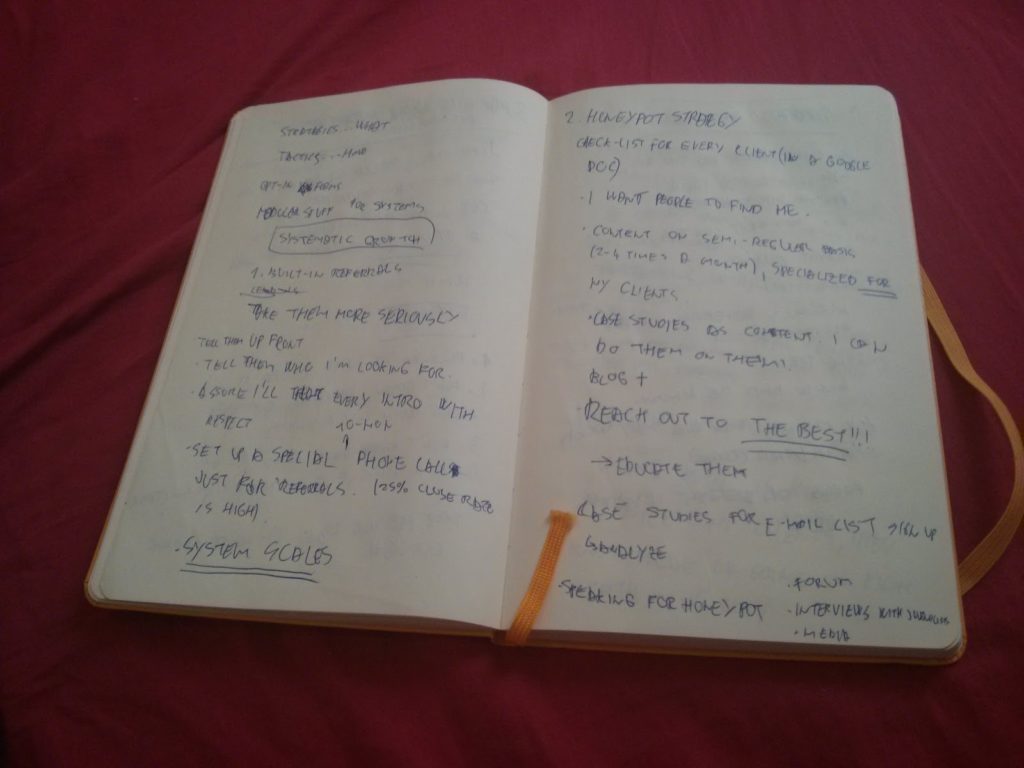 STRATEGIES...WHAT
TACTICS...HOW
OPT-IN FORMS
STUFF FOR SYSTEMS
SYSTEMATIC GROWTH
1. BUILT-IN REFERRALS
TAKE THEM MORE SERIOUSLY
TELL THEM UP FRONT
· TELL THEM WHO I'M LOOKING FOR.
· ASSURE I'LL TREAT EVERY INTRO WITH
RESPECT
10-MIN
· SET UP A SPECIAL PHONE CALL
JUST FOR REFERRALS. (25% CLOSE RATE
IS HIGH)
· SYSTEM SCALES
2. HONEYPOT STRATEGY
CHECK-LIST FOR EVERY CLIENT (IN A GOOGLE
DOC)
· I WANT PEOPLE TO FIND ME.
· CONTENT ON SEMI-REGULAR BASIS
(2-4 TIMES A MONTH), SPECIALIZED FOR
MY CLIENTS
· CASE STUDIES AS CONTENT. I CAN
DO THEM ON THEM!
BLOG +
· REACH OUT TO THE BEST!!!
→ EDUCATE THEM
· CASE STUDIES FOR E-MAIL LIST SIGN UP
&ANALYZE
· SPEAKING FOR HONEYPOT
· FORUM
· INTERVIEWS WITH
· MEDIA